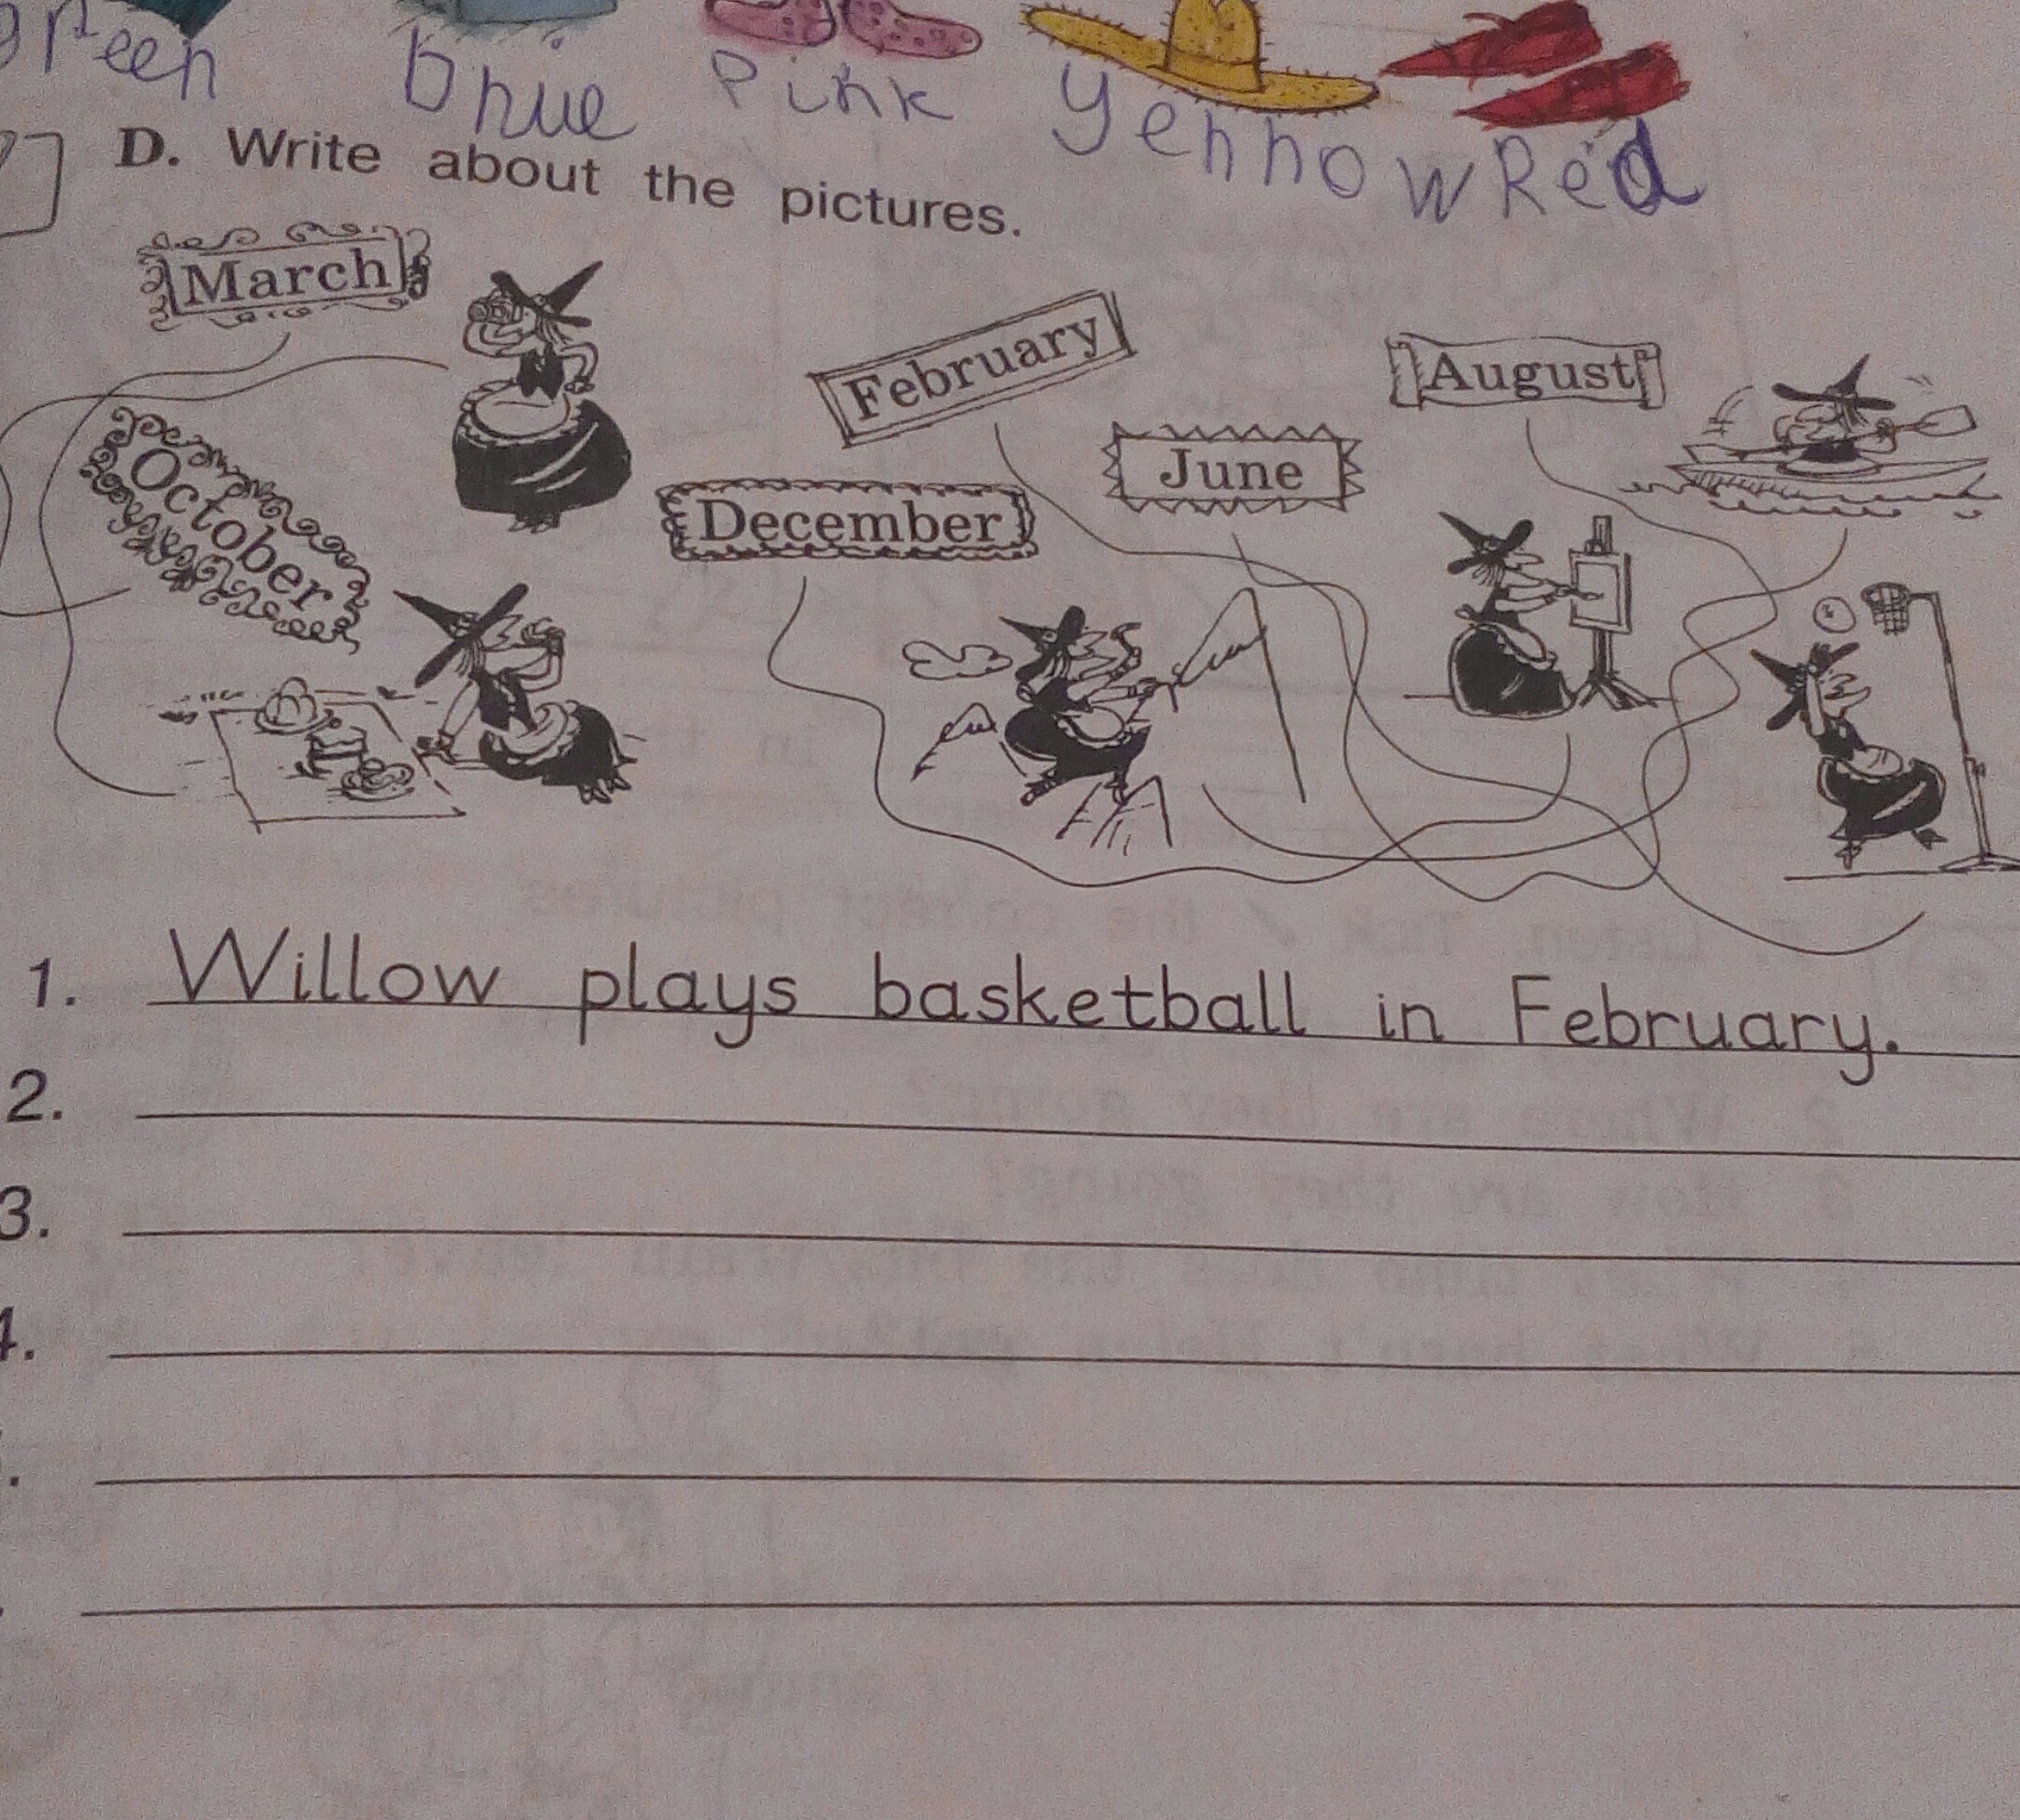 green bhue Pink Yehhow Red
D. Write about the pictures.
March
February
August
October
December
June
1. Willow plays basketball in February.
2.
3.
4.